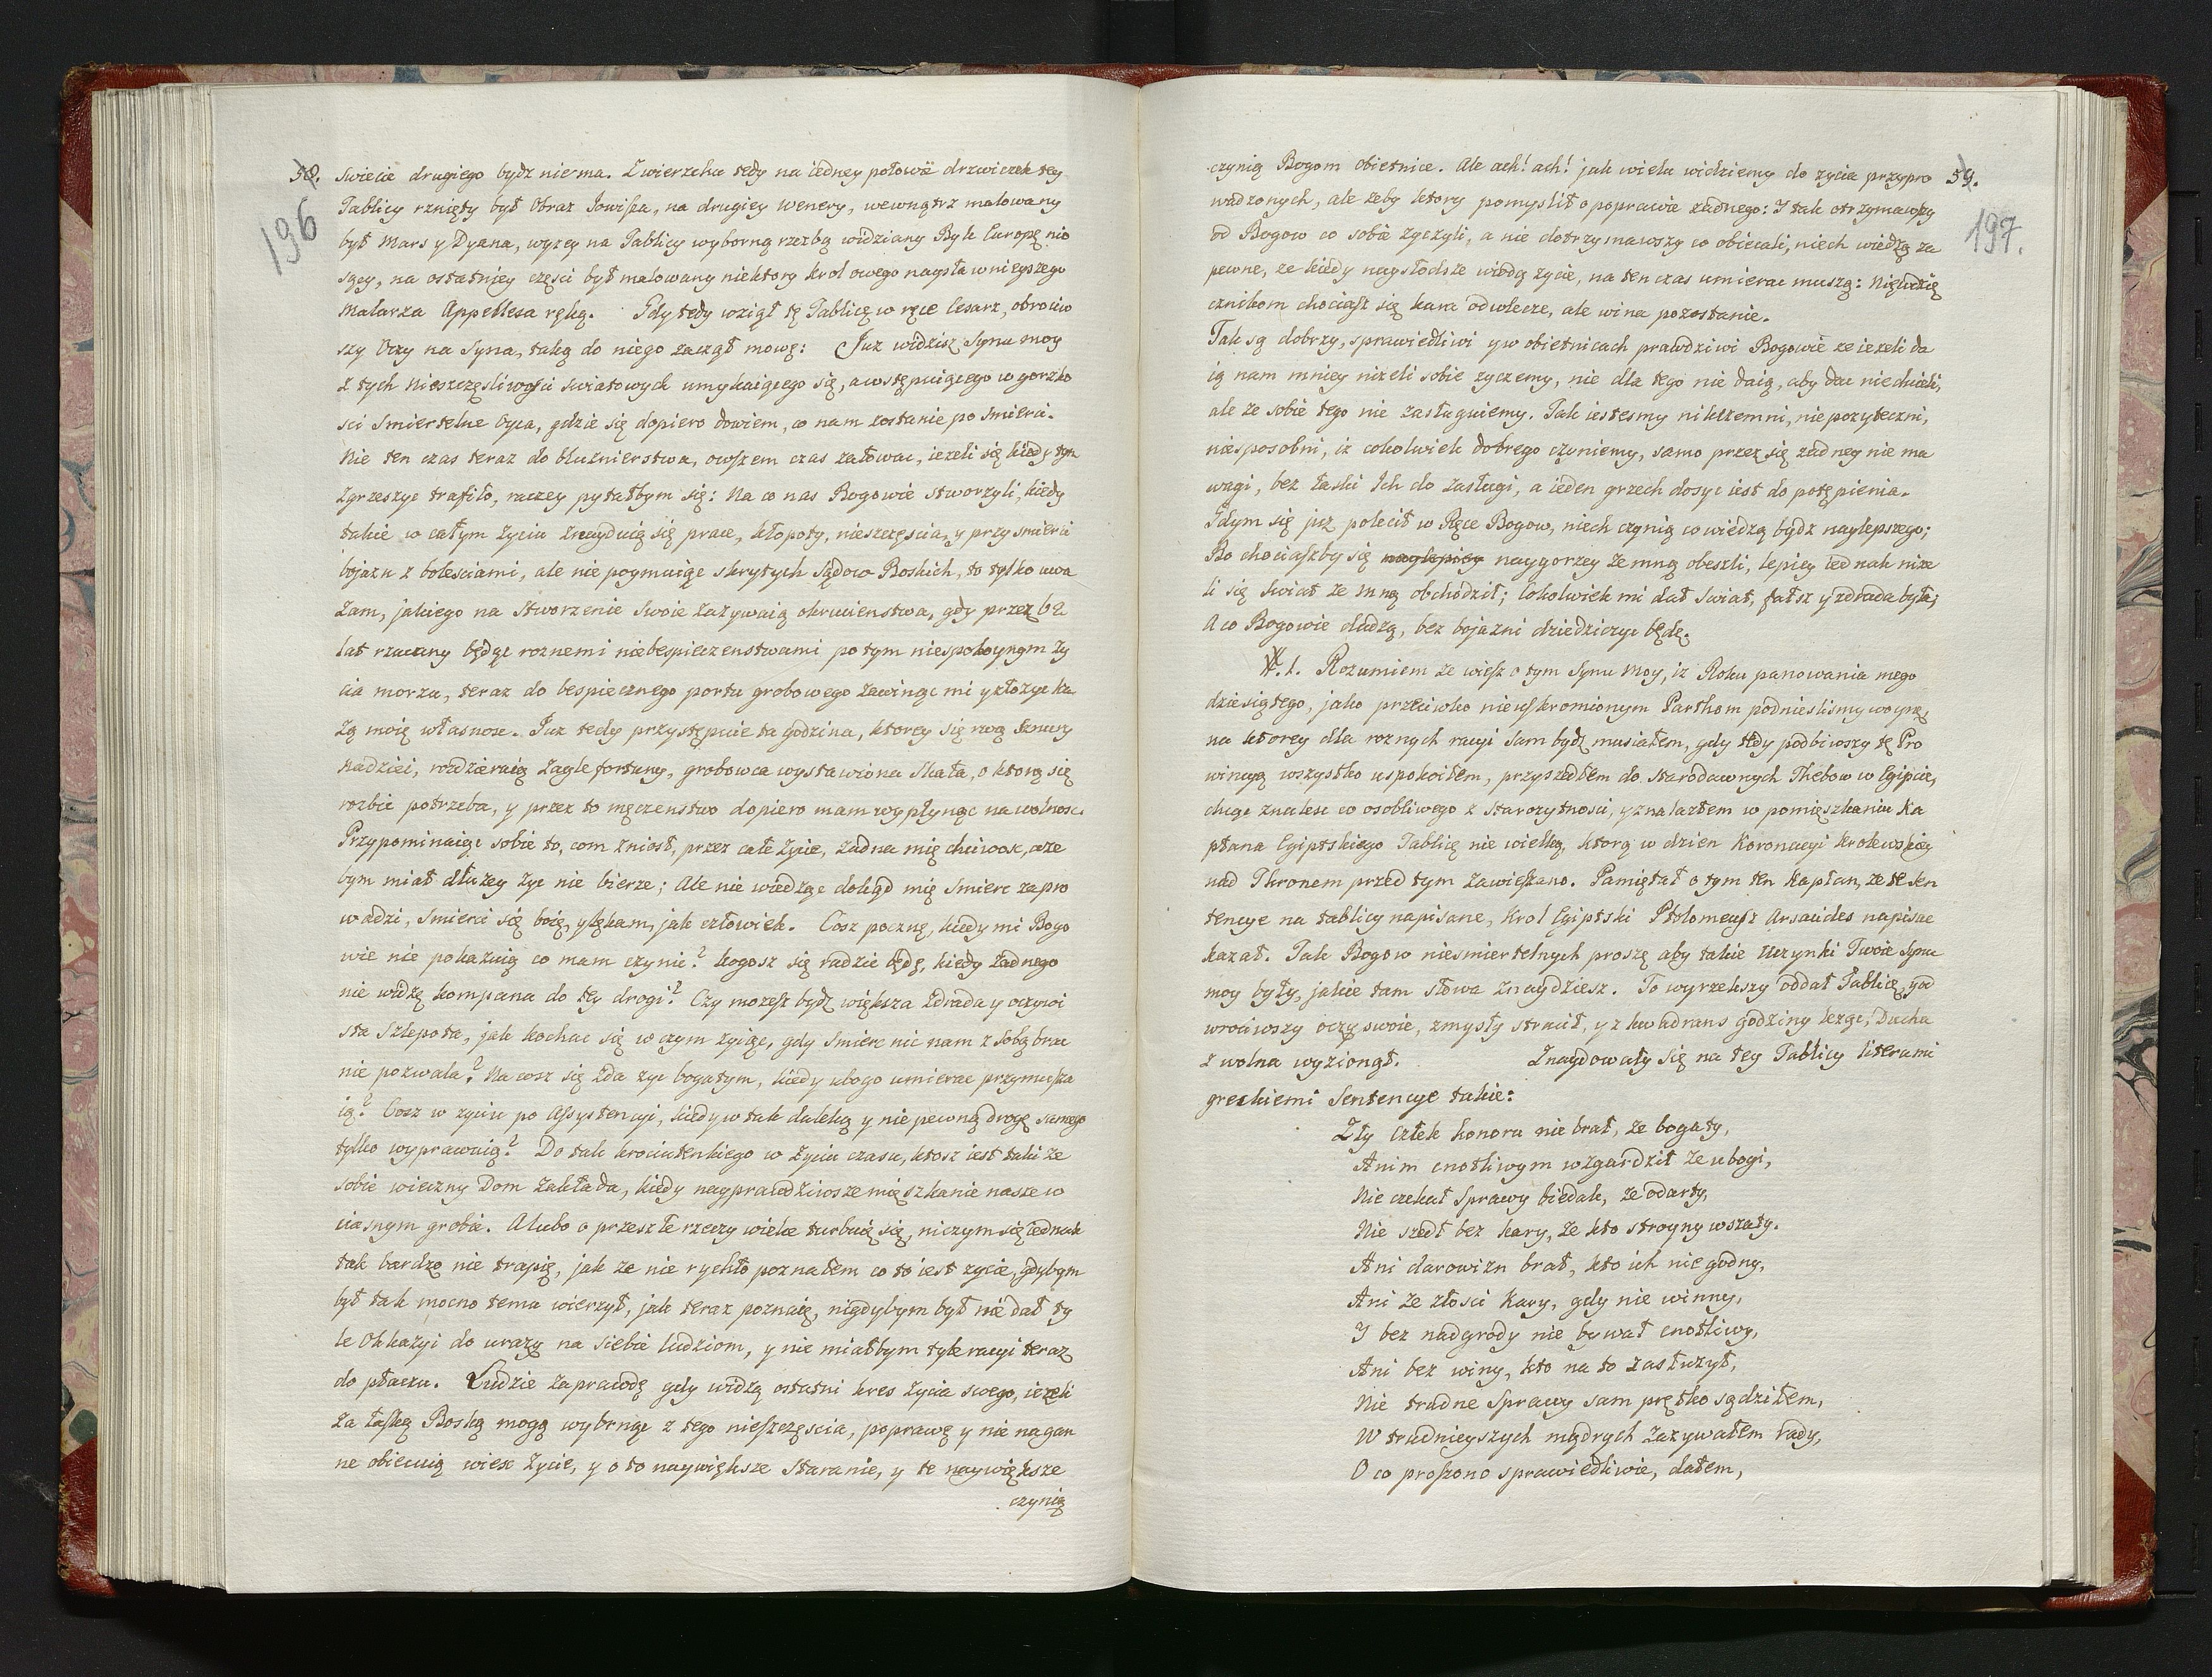 58.
196
swiecie drugiego bydz niema. Zwierzchu tedy na iedney połowie drzwiczek tey
Tablicy rznięty był Obraz Jowisza, na drugiey Wenery, wewnątrz malowany
był Mars y Dyana, wyzey na Tablicy wyborną rzezbą widziany Byk Europę nio
sący, na ostatniey częsci był malowany niektory krol owego naysławnieyszego
Malarza Appellesa ręką. Gdy tedy wziął tę Tablicę w ręce Cesarz, obrociw
szy Oczy na Syna, taką do niego zaczął mowę: Juz widzisz Synu moy
z tych nieszczęsliwosci swiatowych umykaiącego się, a wstępuiącego w gorzko
sci Smiertelne Oyca, gdzie się dopiero dowiem, co nam zostanie po Smierci.
Nie ten czas teraz do bluznierstwa, owszem czas załowac, iezeli się kiedy tym
Zgrzeszyc trafiło, raczey pytałbym się: Na co nas Bogowie stworzyli, kiedy
takie w całym zyciu znayduią się prace, kłopoty, nieszczęscia, y przy smierci
bojazn z bolesciami, ale nie poymuiąc skrytych Sądow Boskich, to tylko uwa
zam, jakiego na Stworzenie Swoie zazywaią okrucienstwa, gdy przez 62
lat rzucany będąc roznemi niebespieczenstwami po tym niespokoynym zy
cia morzu, teraz do bespiecznego portu grobowego zawinąc mi y złozyc ka
zą moię własnosc. Juz tedy przystępuie ta godzina, ktorey się rwą Sznury
nadziei, rozdzieraią zagle fortuny, grobowca wystawiona Skała, o ktorą się
rozbic potrzeba, y przez to męczenstwo dopiero mam wypłynąc na wolnosc.
Przypominaiąc sobie to, com zniosł, przez całe zycie, zadna mię chciwosc, aze
bym miał dłuzey zyc nie bierze; Ale nie wiedząc dokąd mię Smierc zapro
wadzi, Smierci się boię, y lękam, jak człowiek. Cosz pocznę, kiedy mi Bogo
wie nie pokazuią co mam czynic? kogosz się radzic będę, kiedy zadnego
nie widzę kompana do tey drogi? Czy mozesz bydz większa zdrada y oczywi
sta Szlepota, jak kochac się w czym zyiąc, gdy Smierc nic nam z Sobą brac
nie pozwala? Na cosz się zda zyc bogatym, kiedy ubogo umierac przymusza
ią? Cosz w zyciu po Assystencyi, kiedy w tak daleką y nie pewną drogę samego
tylko wyprawuią? Do tak krociutenkiego w zyciu czasu, ktosz iest taki ze
sobie wieczny Dom zakłada, kiedy nayprawdziwsze mięszkanie nasze w
ciasnym grobie. A lubo o przeszłe rzeczy wielce turbuię się, niczym się iednak
tak bardzo nie trapię, jak ze nie rychło poznałem co to iest zycie, gdybym
był tak mocno temu wierzył, jak teraz poznaię, nigdybym był nie dał ty
le Okkazyi do urazy na siebie ludziom, y nie miałbym tyle racyi teraz
do płaczu. Ludzie zaprawdę gdy widzą ostatni kres zycia swego, iezeli
za łaską Boską mogą wybrnąc z tego nieszczęscia, poprawę y nie nagan
ne obiecuią wiesc zycie, y o to naywiększe staranie, y te naywiększe
czynią
59.
197.
czynią Bogom obietnice. Ale ach! ach! jak wielu widziemy do zycia przypro
wadzonych, ale zeby ktory pomyslił o poprawie zadnego: Y tak otrzymawszy
od Bogow co sobie zyczyli, a nie dotrzymawszy co obiecali, niech wiedzą za
pewne, ze kiedy naysłodsze wiodą zycie, na ten czas umierac muszą: Niewdzię
cznikom chociasz się kara odwlecze, ale wina pozostanie.
Tak są dobrzy, sprawiedliwi y w obietnicach prawdziwi Bogowie ze iezeli da
ią nam mniey nizeli sobie zyczemy, nie dla tego nie daią, aby dac niechcieli,
ale ze sobie tego nie zasługuiemy. Tak iestesmy nikczemni, nie pozyteczni,
niesposobni, iz cokolwiek dobrego czyniemy, samo przez się zadney nie ma
wagi, bez łaski Ich do zasługi, a ieden grzech dosyc iest do potępienia.
Gdym się juz polecił w Ręce Bogow, niech czynią co wiedzą bydz naylepszego;
Bo chociaszby się naylepiey naygorzey ze mną obeszli, lepiey iednak nize
li się swiat ze mną obchodził; Cokolwiek mi dał swiat, fałsz y zdrada była;
A co Bogowie dadzą, bez bojazni dziedziczyc będę.
W. 1. Rozumiem ze wiesz o tym Synu moy, iz Roku panowania mego
dziesiątego, jako przeciwko nieuskromionym Parthom podnieslismy woynę,
na ktorey dla roznych racyi sam bydz musiałem, gdy tedy podbiwszy tę Pro
wincyą wszystko uspokoiłem, przyszedłem do Starodawnych Thebow w Egipcie,
chcąc znalesc co osobliwego z Starozytnosci, y znalazłem w pomięszkaniu Ka
płana Egiptskiego Tablicę nie wielką, ktorą w dzien Koronacyi krolewskiey
nad Thronem przed tym zawieszano. Pamiętał o tym ten Kapłan, ze te Sen
tencye na tablicy napisane, Krol Egiptski Ptolomeusz Arsacides napisac
kazał. Tak Bogow niesmiertelnych proszę aby takie Uczynki Twoie Synu
moy były, jakie tam słowa znaydziesz. To wyrzekszy oddał Tablicę, y od
wrociwszy oczy swoie, zmysły stracił, y z kwadrans godziny leząc, Ducha
z wolna wyzionął. Znaydowały się na tey Tablicy literami
greckiemi Sentencye takie:
Zły człek honoru nie brał, ze bogaty,
Anim cnotliwym wzgardził ze ubogi,
Nie czekał Sprawy biedak, ze odarty,
Nie szedł bez kary, ze kto stroyny w szaty.
Ani darowizn brał, kto ich nie godny,
Ani ze złosci kary, gdy nie winny,
Y bez nadgrody nie bywał cnotliwy,
Ani bez winy, kto na to zasłuzył,
Nie trudne Sprawy sam prętko sądziłem,
W trudnieyszych mądrych zazywałem rady,
O co proszono sprawiedliwie, dałem,